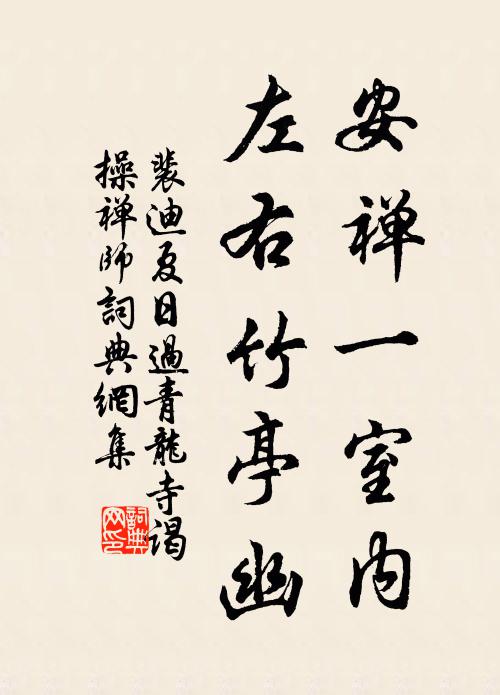 安禅一室内
左右竹亭幽
裴迪夏日過青龍寺谒
操禅师詞典網集
詞典
网印